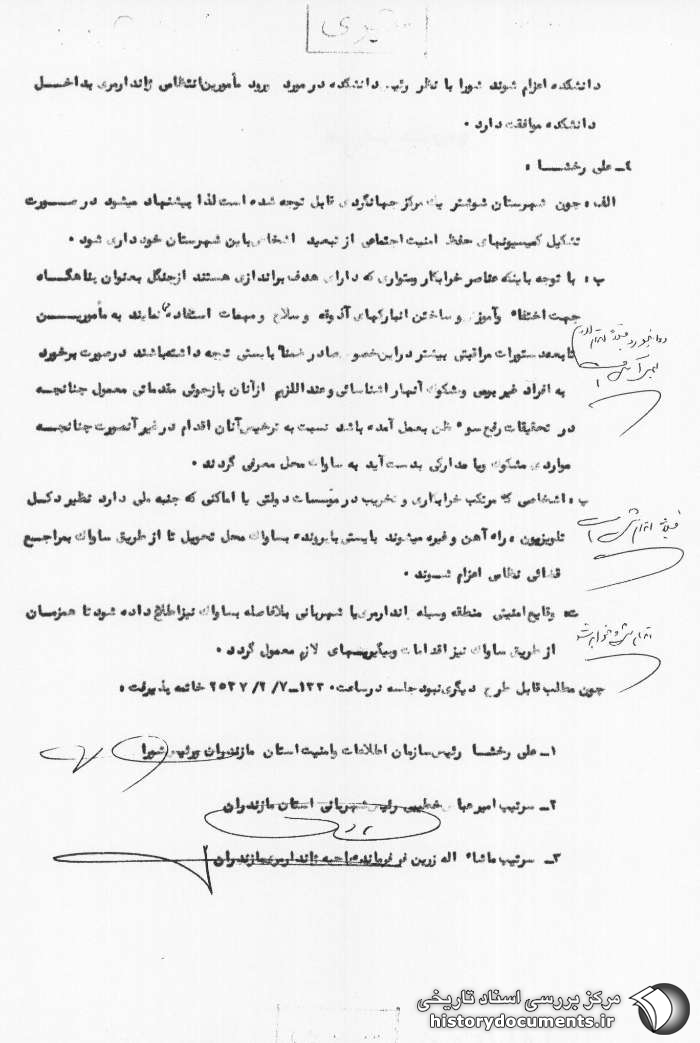 دانشکده اعزام شوند شورا با نظر رئیس دانشکده در مورد ورود مأمورین انتظامی ژاندارمری بداخل
دانشکده موافقت دارد .
٤ـ علی رخشا :
الف : چون شهرستان شوشتر یک مرکز جهانگردی قابل توجه شده است لذا پیشنهاد میشود در صورت
تشکیل کمیسیونهای حفظ امنیت اجتماعی از تبعید اشخاص باین شهرستان خودداری شود .
ب : با توجه باینکه عناصر خرابکار ومتواری که دارای هدف براندازی هستند ازجنگل بعنوان پناهگاه
جهت اختفاء وآموزش و ساختن انبارکهای آذوقه و سلاح و مهمات استفاده نمایند به مأمورین
تابعه دستورات مراقبتی بیشتر دراین خصوص صادر ضمناً بایستی توجه داشته باشند درصورت برخورد
به افراد غیر بومی ومشکوک آنهارا شناسائی وعنداللزوم ازآنان بازجوئی مقدماتی معمول چنانچه
در تحقیقات رفع سوء ظن بعمل آمده باشد نسبت به ترخیص آنان اقدام در غیر آنصورت چنانچه
مواردی مشکوک ویا مدارکی بدست آید به ساواک محل معرفی گردند .
پ : اشخاصی که مرتکب خرابکاری و تخریب در مؤسسات دولتی یا اماکنی که جنبه ملی دارد نظیر دکل
تلویزیون ، راه آهن و غیره میشوند بایستی باپرونده بساواک محل تحویل تا از طریق ساواک بمراجع
قضائی نظامی اعزام شوند .
ت: وقایع امنیتی منطقه وسیله ژاندارمری یا شهربانی بلافاصله بساواک نیز اطلاع داده شود تا همزمان
از طریق ساواک نیز اقدامات وپیگیریهای لازم معمول گردد .
چون مطلب قابل طرح دیگری نبود جلسه در ساعت ١٣٣٠ـ ٢٥٣٧/٢/٧ خاتمه پذیرفت .
١ـ علی رخشا رئیس سازمان اطلاعات وامنیت استان مازندران ورئیس شورا
٢ـ سرتیپ امیر عباس خطیبی رئیس شهربانی استان مازندران
٣ـ سرتیپ ماشاء اله زرین فر فرمانده ناحیه ژاندارمری مازندران
مرکز بررسی اسناد تاریخی
historydocuments.ir